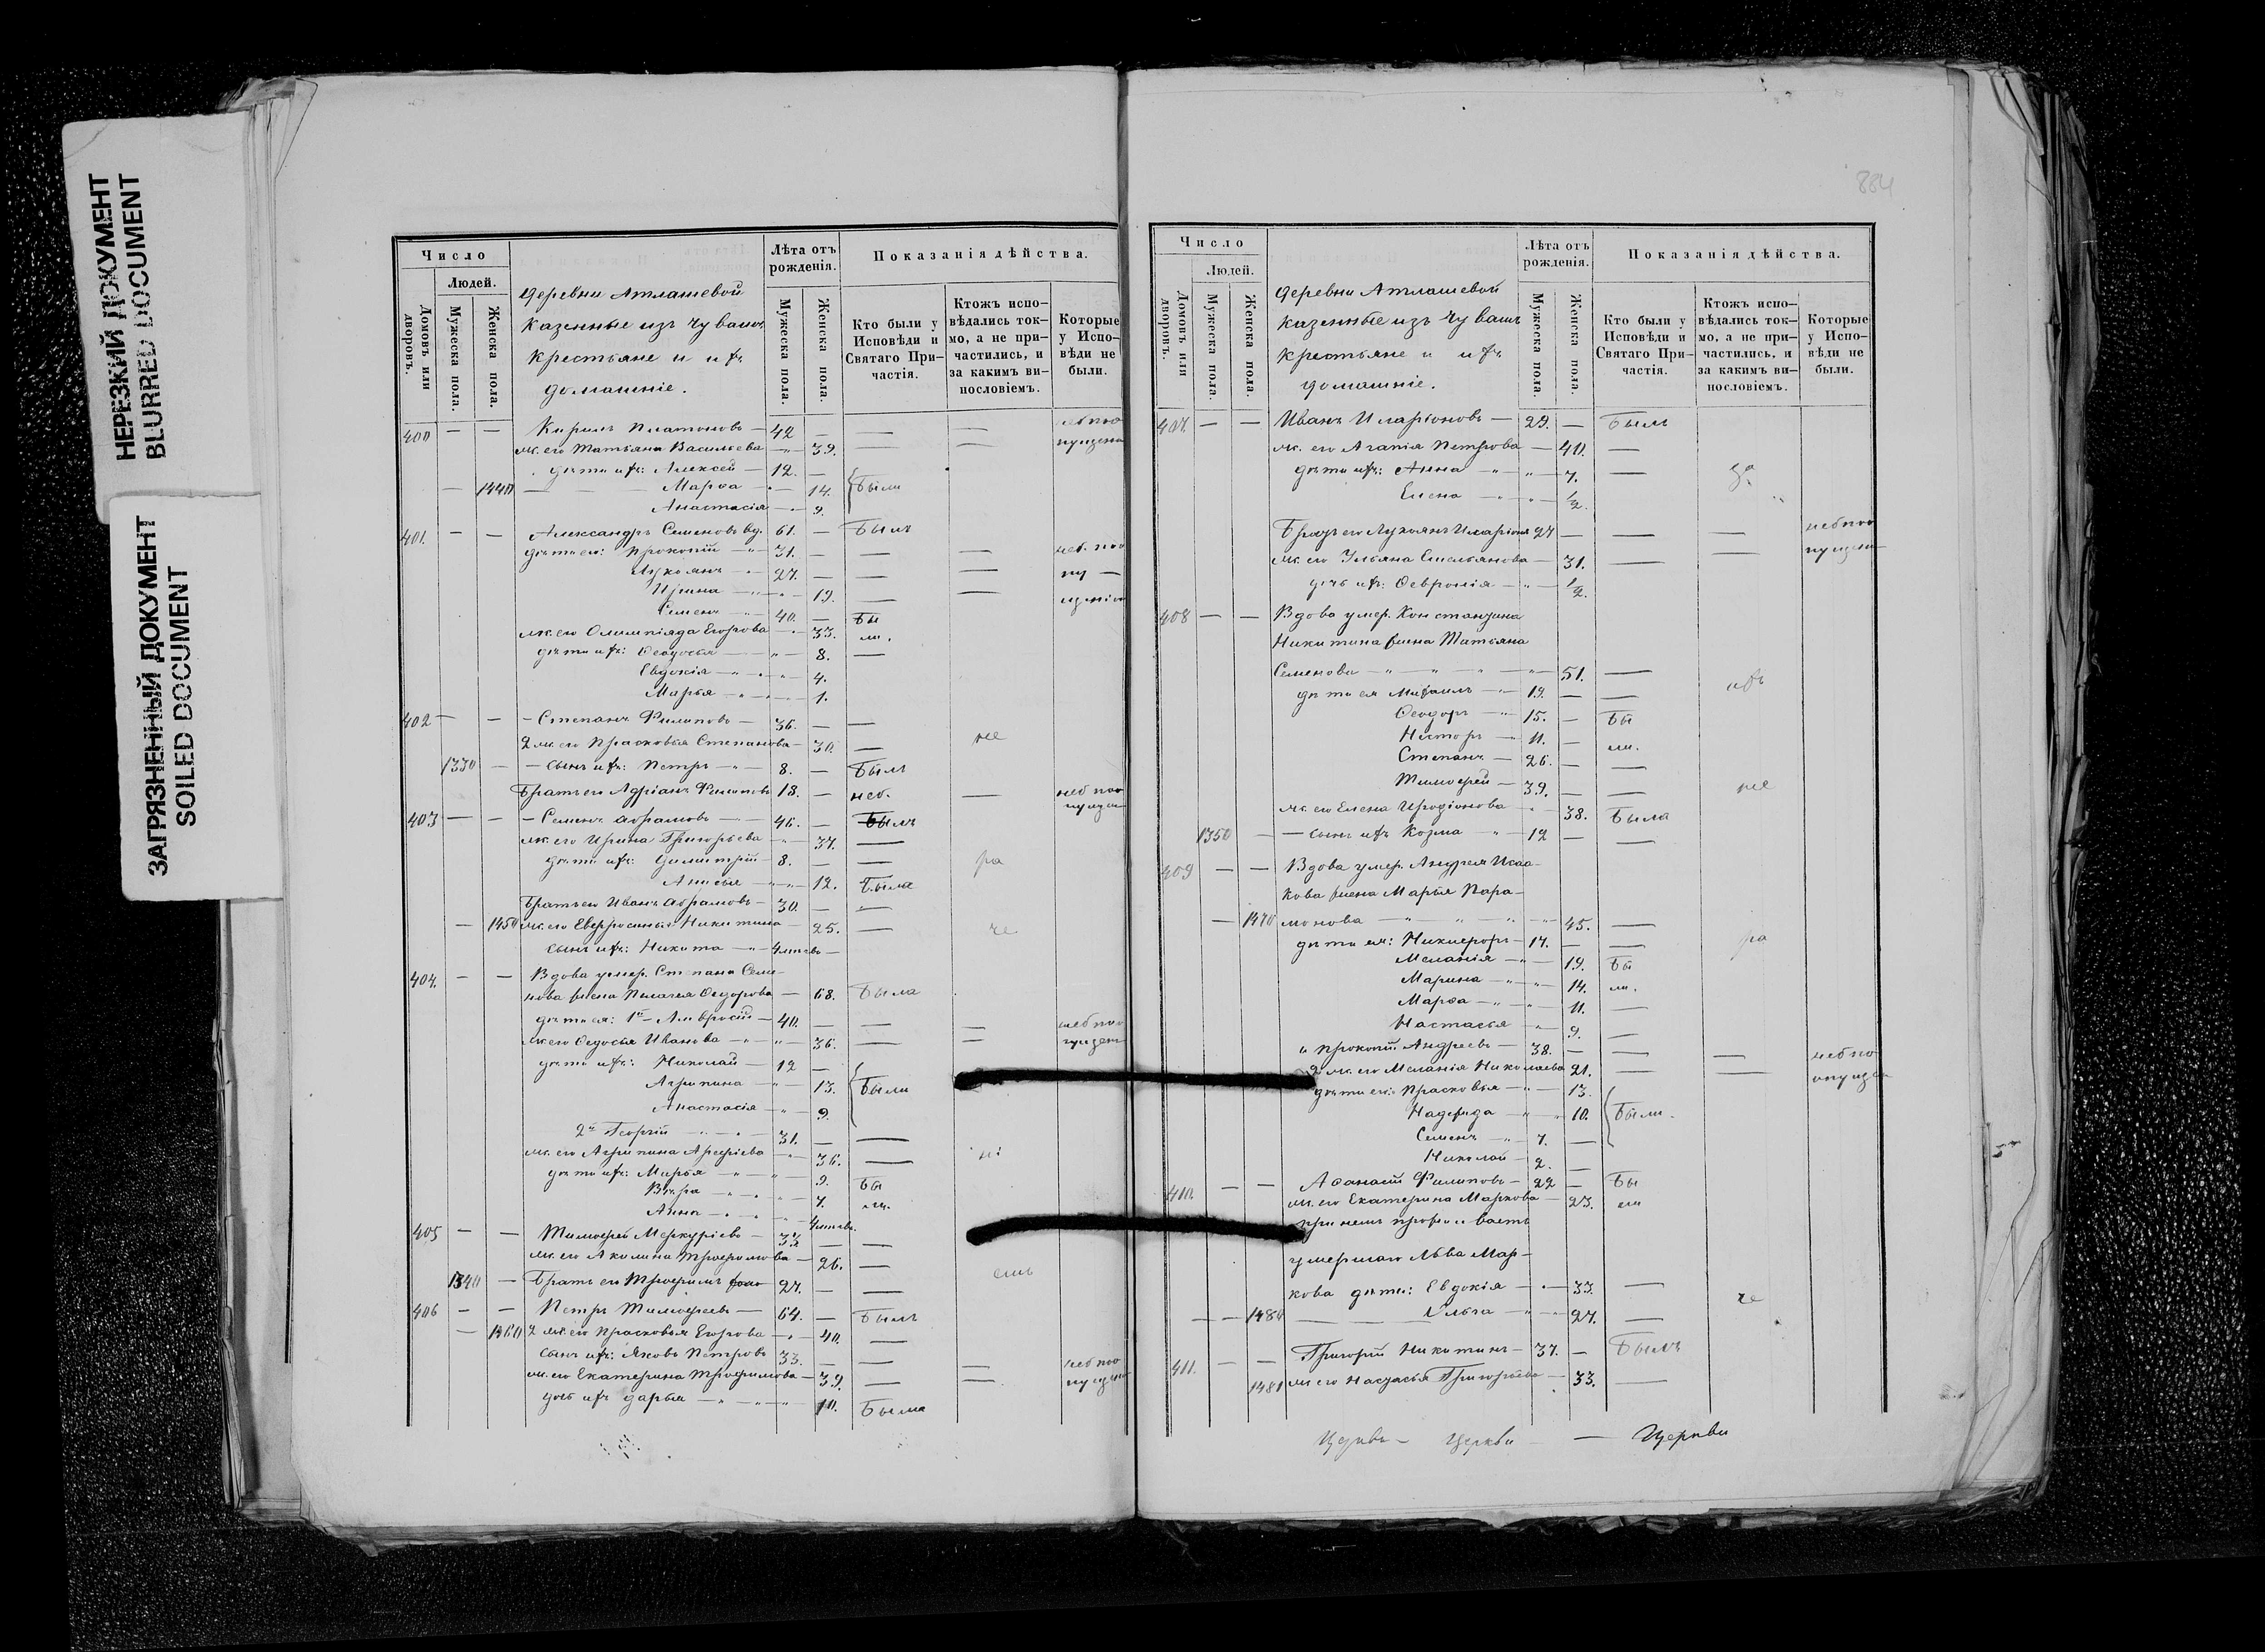 НЕРЕЗКИЙ ДОКУМЕНТ
BLURRED DOCUMENT
ЗАГРЯЗНЕННЫЙ ДОКУМЕНТ
SOILED DOCUMENT
Число
Людей.
Домовъ или дворовъ.
Мужеска пола.
Женска пола.
деревни Атлашевой
казенные изъ чувашъ
крестьяне и ихъ
домашніе.
Лѣта отъ рожденія.
Мужеска пола.
Женска пола.
Показанія дѣйства.
Кто были у Исповѣди и Святаго Причастія.
Ктожъ исповѣдались токмо, а не причастились, и за какимъ винословіемъ.
Которые у Исповѣди не были.
400 — — Кирилъ Платоновъ — 42 —
ж. его Татьяна Васильева — 39.
дѣти ихъ: Алексей — 12. —
— 1440 Марѳа — 14. Были
Анастасія — 9.
401. — — Александръ Семеновъ вд. 61. — Былъ
дѣти его: Прокопій — 31. —
Лукоянъ — 27. —
Ирина — 19. —
Семенъ — 40. — Бы
ж. его Олимпіяда Егорова — 33. ли.
дѣти ихъ: Ѳеодосья — 8. —
Евдокія — 4.
Марья — 1.
402 — — Степанъ Филиповъ — 36. — —
2 ж. его Прасковья Степанова — 30. —
1330 — сынъ ихъ: Петръ — 8. — Былъ
Братъ его Адріанъ Филиповъ 18. — неб. —
403 — — Семенъ Абрамовъ — 46. — Былъ
ж. его Ирина Григорьева — 37. —
дѣти ихъ: Димитрій — 8. — —
Анисья — 12. Была
Братъ его Иванъ Абрамовъ — 30. — —
— 1450 ж. его Евфросинья Никитина — 25. —
сынъ ихъ: Никита —
404. — — Вдова умер. Степана Семе-
нова жена Пелагея Ѳедорова — 68. Была
дѣти ея: 1й Амвросій — 40. — —
ж. его Ѳедосья Иванова — 36. —
дѣти ихъ: Николай — 12 —
Агрипина — 13. Были
Анастасія — 9.
2й Георгій — 31. — —
ж. его Агрипина Арефіева — 36. —
дѣти ихъ: Марья — 9. Бы
Вѣра — 7. ли.
Анна —
405 — — Тимофей Меркуріевъ — — —
ж. его Акилина Трофимова — 26. —
1340 — Братъ его Трофимъ — 27. — —
406 — — Петръ Тимофеевъ — 64. — Былъ
— 1460 2 ж. его Прасковья Егорова — 40. —
сынъ ихъ: Яковъ Петровъ 33. — —
ж. его Екатерина Трофимова — 39. —
дочь ихъ Дарья — 10. Была
Число
Людей.
Домовъ или дворовъ.
Мужеска пола.
Женска пола.
деревни Атлашевой
казенные изъ чувашъ
крестьяне и ихъ
домашніе.
Лѣта отъ рожденія.
Мужеска пола
Женска пола.
Показанія дѣйства.
Кто были у Исповѣди и Святаго Причастія.
Ктожъ исповѣдались токмо, а не причастились, и за какимъ винословіемъ.
Которые у Исповѣди не были.
407. — — Иванъ Иларіоновъ — 29. — Былъ
ж. его Агапія Петрова — 40. —
дѣти ихъ: Анна — 7. —
Елена — 1/2.
Братъ его Лукоянъ Иларіоно 27 — — —
ж. его Ульяна Емельянова — 31. — —
дочь ихъ: Ѳевронія — 1/2.
408 — — Вдова умер. Констандина
Никитина жена Татьяна
Семенова — 51. —
дѣти ея Михаилъ — 19. — —
Ѳеодоръ — 15. — Бы
Несторъ — 11. — ли.
Степанъ — 26. — —
Тимофей — 39. — —
ж. его Елена Иродіонова — 38. Была
1350 — сынъ ихъ Козма — 12 — —
409 — — Вдова умер. Андрея Исаа-
кова жена Марья Пара-
— 1470 монова — 45. —
дѣти ея: Никифоръ — 17. — —
Меланія — 19. Бы
Марина — 14. ли.
Марѳа — 11. —
Настасья — 9. —
Прокопій Андреевъ — 38. — — —
2 ж. его Меланія Николаева 21. — —
дѣти его: Прасковья — 13.
Надежда — 10. Были.
Семенъ — 7. —
Николай — 2. —
410. — — Аѳанасій Филиповъ — 22 — Бы
ж. его Екатерина Маркова — 23. ли
при немъ проживаетъ
умершаго Льва Мар-
кова дѣти: Евдокія — 33. —
— 1480 Ольга — 27. —
411. — — Григорій Никитинъ — 37. — Былъ
1481 ж. его Настасья Григорьева — 33. —
Церковь — Церкви — Церкви